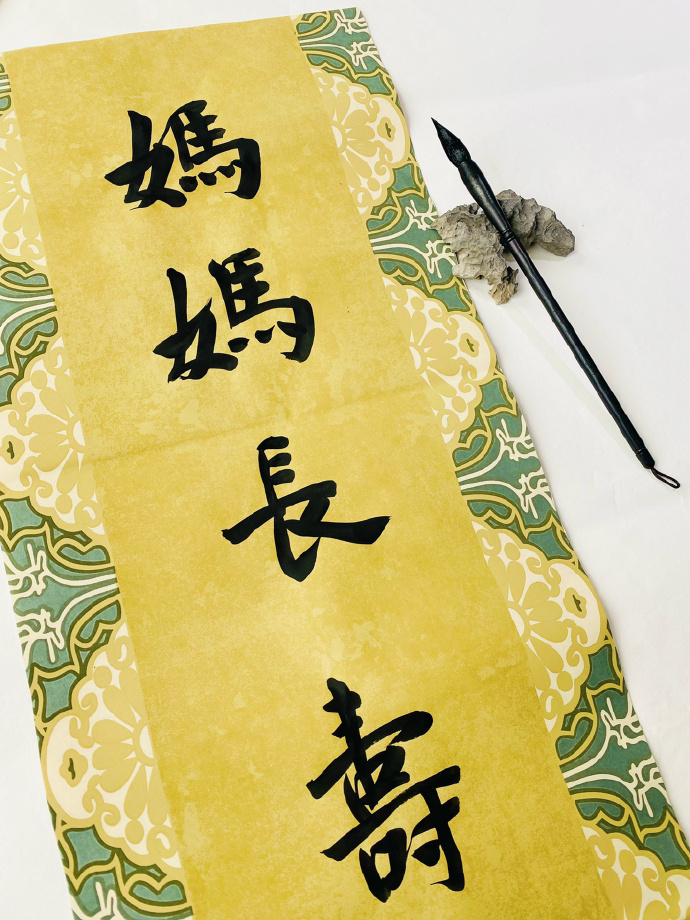 媽媽長壽